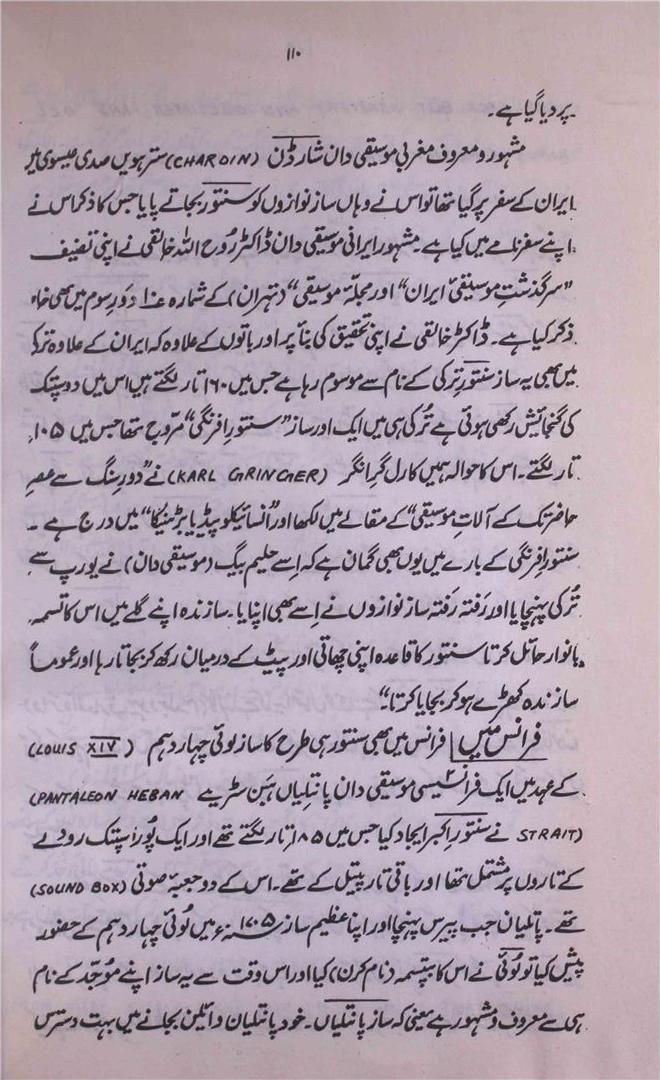 ۱۱۰
پر دیا گیا ہے۔
مشہور و معروف مغربی موسیقی دان شارڈن (CHARDIN) سترہویں صدی عیسوی میں
ایران کے سفر پر گیا تھا تو اس نے وہاں ساز نوازوں کو سنتور بجاتے پایا جس کا ذکر اس نے
اپنے سفرنامے میں کیا ہے۔ مشہور ایرانی موسیقی دان ڈاکٹر روح اللہ خالقی نے اپنی تصنیف
”سرگذشتِ موسیقیٔ ایران“ اور مجلّہ موسیقی“ (تہران) کے شمارہ ۱۰ دورِ سوم میں بھی خاص
ذکر کیا ہے۔ ڈاکٹر خالقی نے اپنی تحقیق کی بنأ پر اور باتوں کے علاوہ کہ ایران کے علاوہ ترکی
میں بھی یہ ساز سنتورِ ترکی کے نام سے موسوم رہا ہے جس میں ۱۶۰ تار لگتے ہیں اس میں دو سپتک
کی گنجائیش رکھی ہوئی ہے تُرکی ہی میں ایک اور ساز ”سنتورِ افرنگی“ مروّج تھا جس میں ۱۰۵
تار لگتے۔ اس کا حوالہ ہمیں کارل گرانگر (KARL GRINGER) نے ”دورِ سنگ سے عصرِ
حاضر تک کے آلاتِ موسیقی“ کے مقالے میں لکھا اور ”انسائیکلوپیڈیا برٹینیکا“ میں درج ہے ۔
سنتورِ افرنگی کے بارے میں یوں بھی گمان ہے کہ اِسے حلیم بیگ (موسیقی دان) نے یورپ سے
تُرکی پہنچایا اور رَفتہ رَفتہ ساز نوازوں نے اِسے بھی اپنایا۔ سازندہ اپنے گلے میں اس کا تسمہ
یا نوار حمائل کرتا سنتور کا قاعدہ اپنی چھاتی اور پیٹ کے درمیان رکھ کر بجاتا رہا اور عموماً
سازندہ کھڑے ہو کر بجایا کرتا۔“
فرانس میں فرانس میں بھی سنتور ہی طرح کا ساز لوئی چہار دہم (LOUIS XIV)
کے عہد میں ایک فرانسیسی موسیقی دان پانتلیاں ہبن سٹریے (PANTALEON HEBAN
STRAIT) نے سنتورِ اکبر ایجاد کیا جس میں ۱۸۵ تار لگتے تھے اور ایک پُورا سپتک رودے
کے تاروں پر مشتمل تھا اور باقی تار پیتل کے تھے۔ اس کے دو جعبۂ صوتی (SOUND BOX)
تھے۔ پانتلیان جب پیرس پہنچا اور اپنا عظیم ساز ۱۷۰۵ء میں لُوئی چہار دہم کے حضور
پیش کیا تو لُوئی نے اس کا بپتسمہ (نام کرن) کیا اور اس وقت سے یہ ساز اپنے موُجّد کے نام
ہی سے معروف و مشہور ہے یعنی کہ سازِ پانتلیاں۔ خود پانتلیان وائلین بجانے میں بہت دسترس